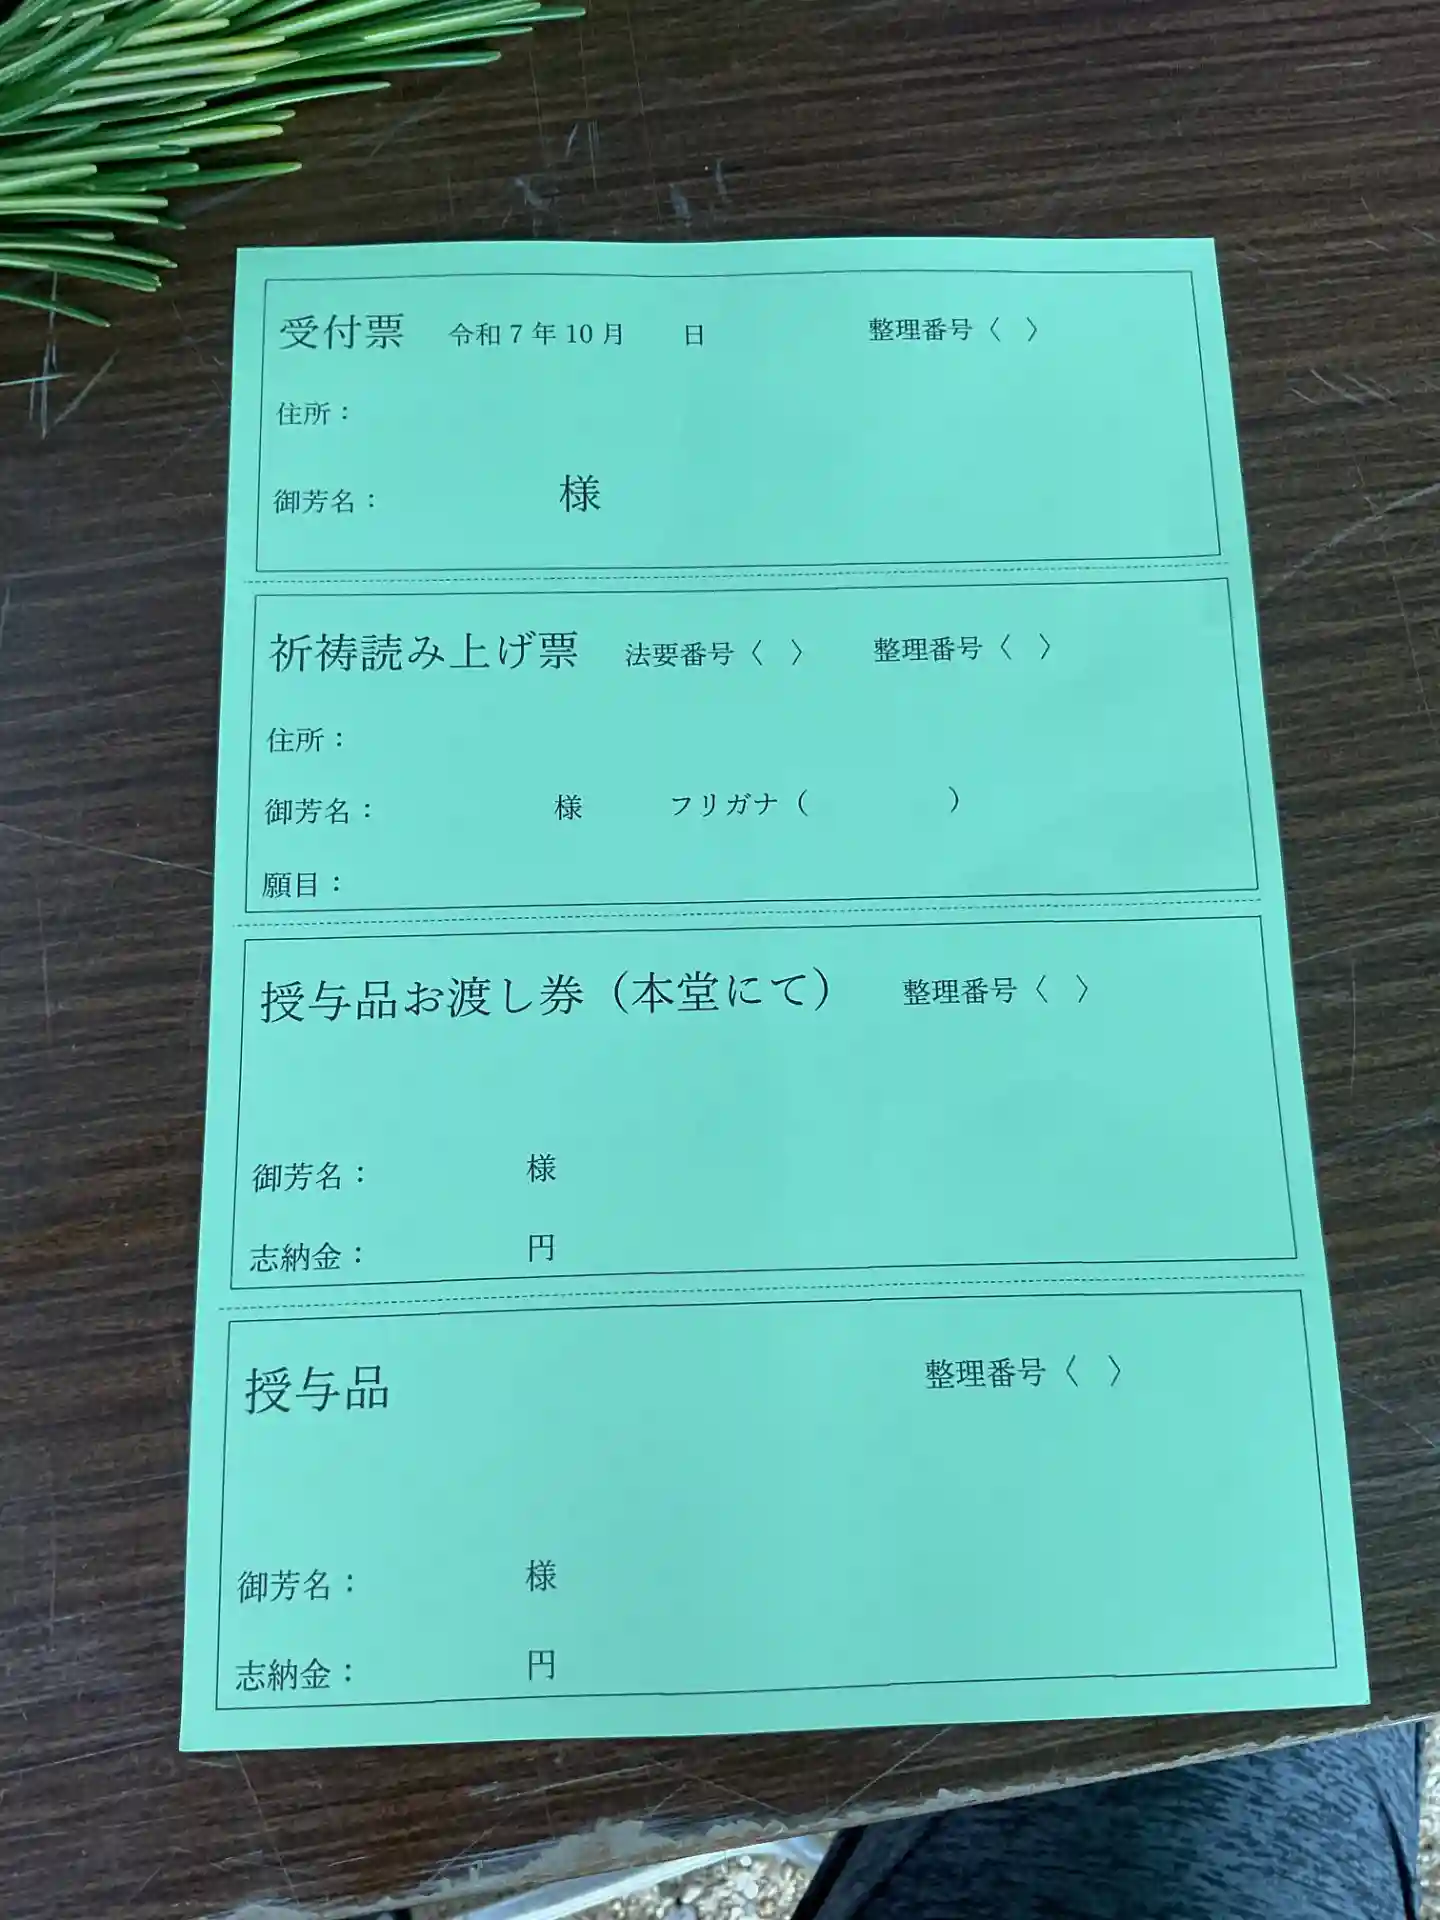 受付票 令和7年10月 日 整理番号〈 〉
住所：
御芳名： 様
祈祷読み上げ票 法要番号〈 〉 整理番号〈 〉
住所：
御芳名： 様 フリガナ（ ）
願目：
授与品お渡し券（本堂にて） 整理番号〈 〉
御芳名： 様
志納金： 円
授与品 整理番号〈 〉
御芳名： 様
志納金： 円